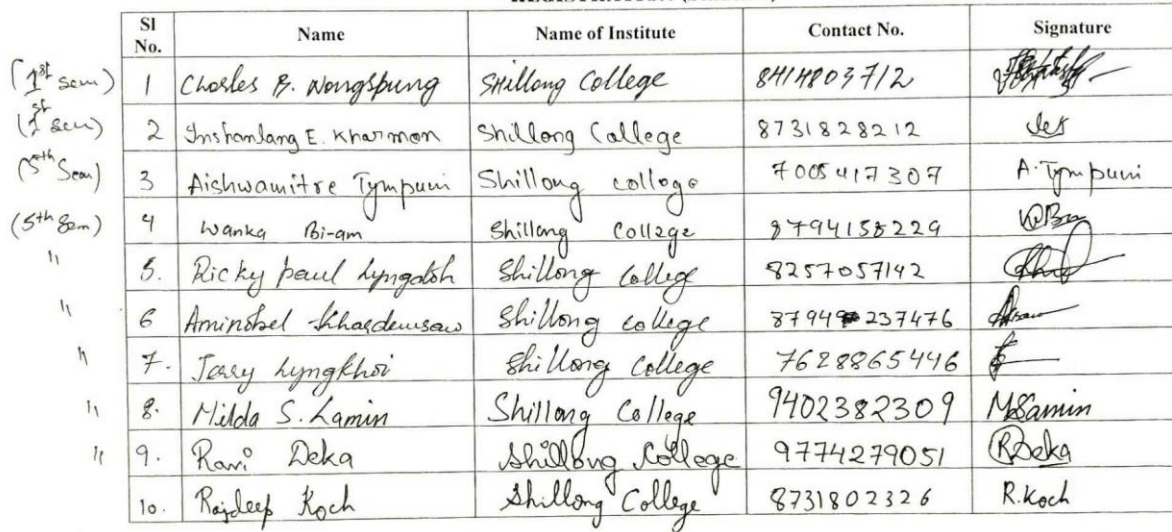 Sl No. Name Name of Institute Contact No. Signature
(1st sem) 1 Charles B. Nongspung Shillong College 8414803712
(1st sem) 2 Inshanlang E. Kharmon Shillong College 8731828212
(5th Sem) 3 Aishwamitre Tympuin Shillong college 7005417307 A. Tympuin
(5th Sem) 4 Wanka Bi-am Shillong College 8794158229
" 5. Ricky paul Lyngdoh Shillong College 8257057142
" 6 Shillong college
" 7. Jerry Lyngkhoi Shillong College 7628865446
" 8. Milda S. Lamin Shillong College 9402382309 MSLamin
" 9. Ravi Deka Shillong College 9774279051 RDeka
10. Rajdeep Koch Shillong College 8731802326 R.Koch